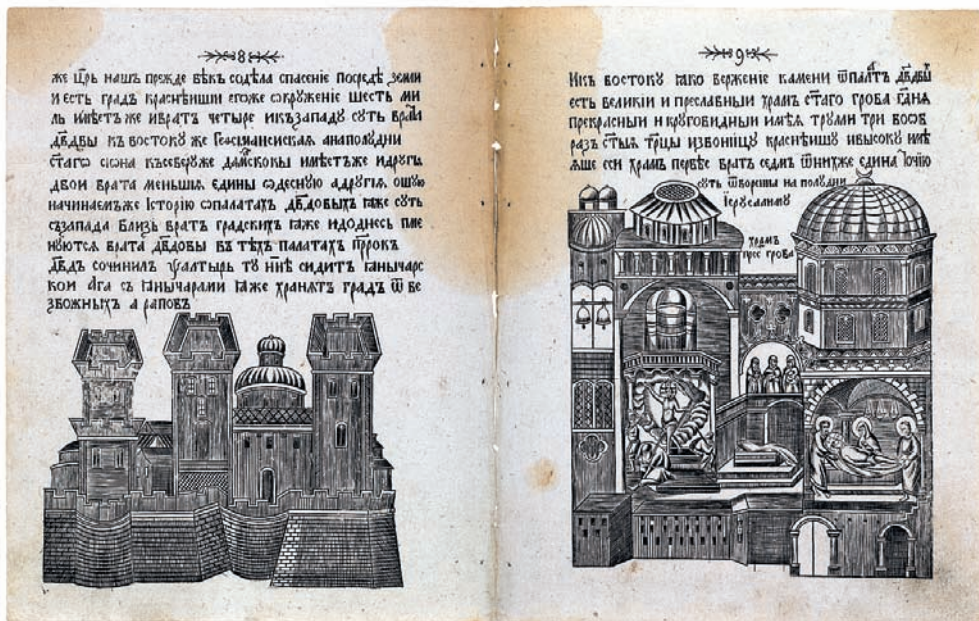 8
же Црь нашъ прежде вѣкъ содѣла спасенїе посредѣ земли
и есть градъ краснѣишии егоже ѡкруженїе шесть ми
ль имѣетъ же ивратъ четыре икъзападу суть врата
дв҃дѡвы къ востоку же Геѳсиманисиская анаполудни
ст҃агѡ сиѡна къ себеруже дамаскокы имѣетъже идругѣ
двои врата меньшїѧ едины ѡдесную адругїѧ ошую
начинаемъже Їсторїю ѡпалатахъ дв҃довыхъ ꙗже суть
съзапада близь вратъ градскихъ ꙗже идоднесь име
нуютсѧ врата дв҃довы въ тѣхъ палатахъ пр҃рокъ
дв҃дъ сочинилъ ѱалтырь ту нн҃ѣ сидитъ ꙗнычарс
кои ага съ ꙗнычарами ꙗже хранѧтъ градъ ѿ бе
збожныхъ а раповъ
9
Икъ востоку ꙗко верженїе камени ѿпалатъ дв҃двы
есть великїи и преславныи храмъ ст҃аго гроба гд҃нѧ
прекрасныи и круговидныи имѣѧ труми три восъ
разъ ст҃ыѧ тр҃цы извонїцу краснѣишу ивысоку имѣ
ѧше еси храмъ первѣе вратъ седмъ ѿнихже едина точїю
суть ѿворены на полудни
Їерусалиму
храмъ
гроба